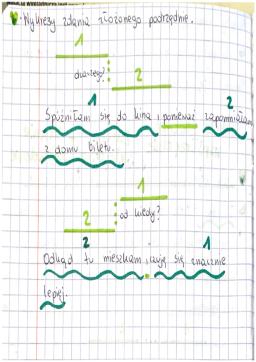 Wykresy zdania złożonego podrzędnie.
1
dlaczego? 2
1 2
Spóźniłam się do kina, ponieważ zapomniałam
z domu biletu.
1
2 od kiedy?
2 1
Odkąd tu mieszkam, czuję się znacznie
lepiej.